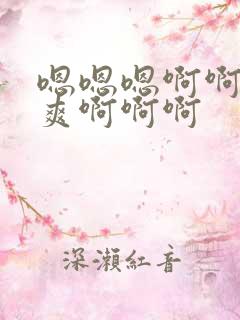 嗯嗯嗯啊啊
爽啊啊啊
深瀨紅音